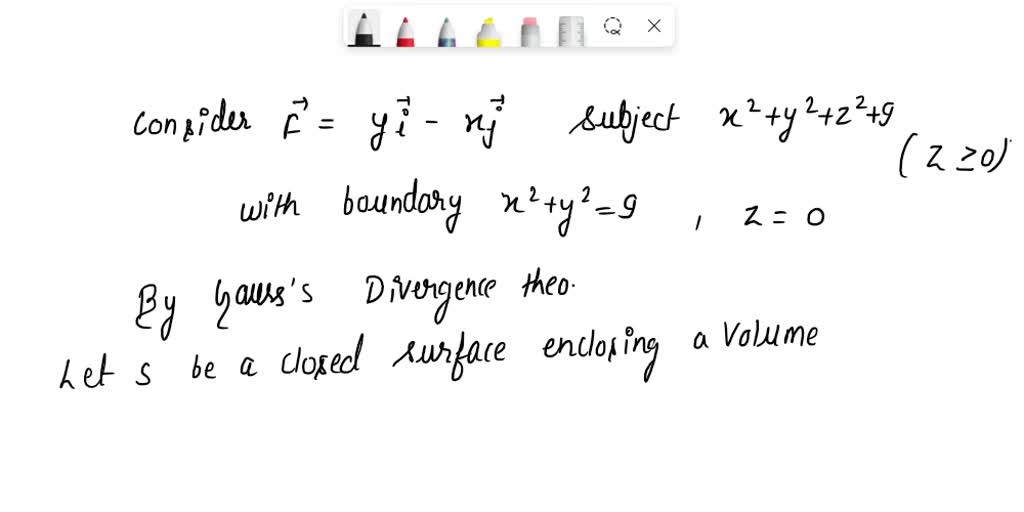 consider F⃗ = y i⃗ - x j⃗ subject x²+y²+z²+9
(z ≥0)
with boundary x²+y²=9 , z = 0
By Gauss's Divergence theo.
Let s be a closed surface enclosing a volume